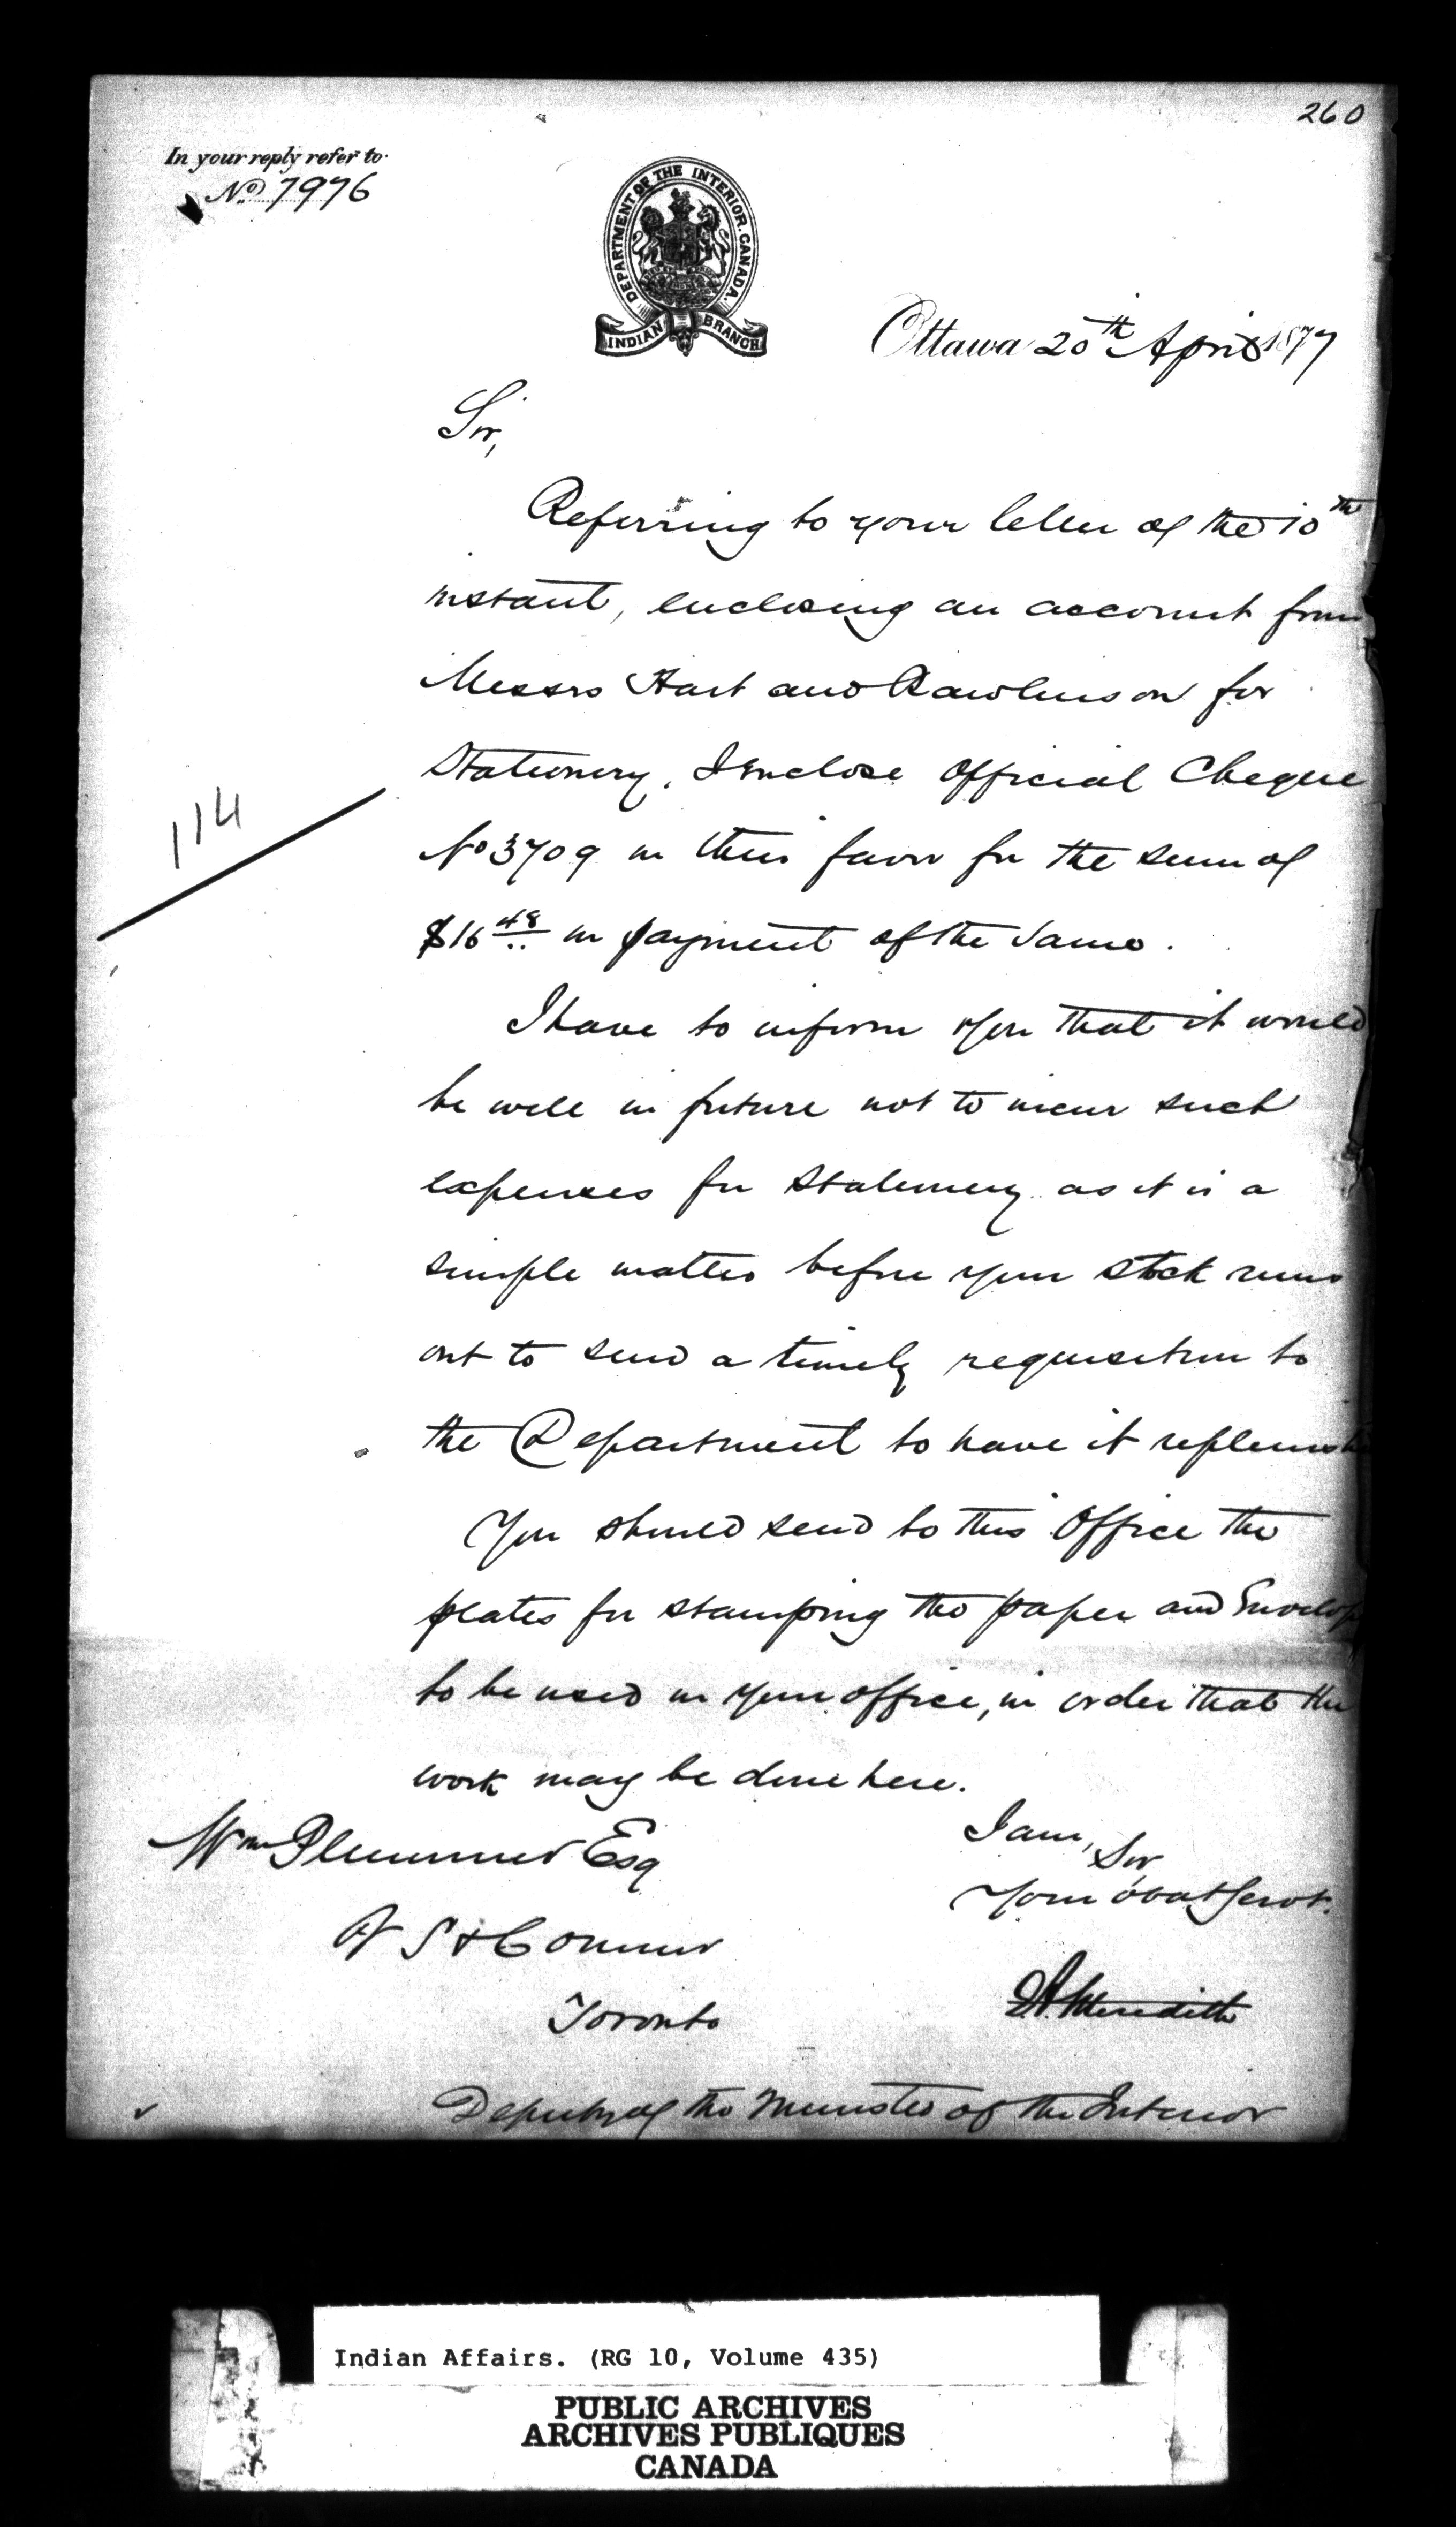 260
In your reply refer to
No 7976
DEPARTMENT OF THE INTERIOR. CANADA.
INDIAN BRANCH
Ottawa 20th April 1877
Sir,
Referring to your letter of the 10th
instant, enclosing an account from
Messrs Hart and Rawlinson for
Stationery, I enclose Official Cheque
No 3709 in their favor for the sum of
$16 48 in payment of the same.
I have to inform you that it would
be well in future not to incur such
expenses for Stationery as it is a
simple matter before your stock runs
out to send a timely requisition to
the Department to have it replenish
You should send to this Office the
plates for stamping the paper and Envelop
to be used in your office, in order that the
work may be done here.
I am,
Sir
Your obdt servt.
Wm Plummer Esq
St & Commr
Toronto
Meredith
Deputy of the Minister of the Interior
114
Indian Affairs. (RG 10, Volume 435)
PUBLIC ARCHIVES
ARCHIVES PUBLIQUES
CANADA